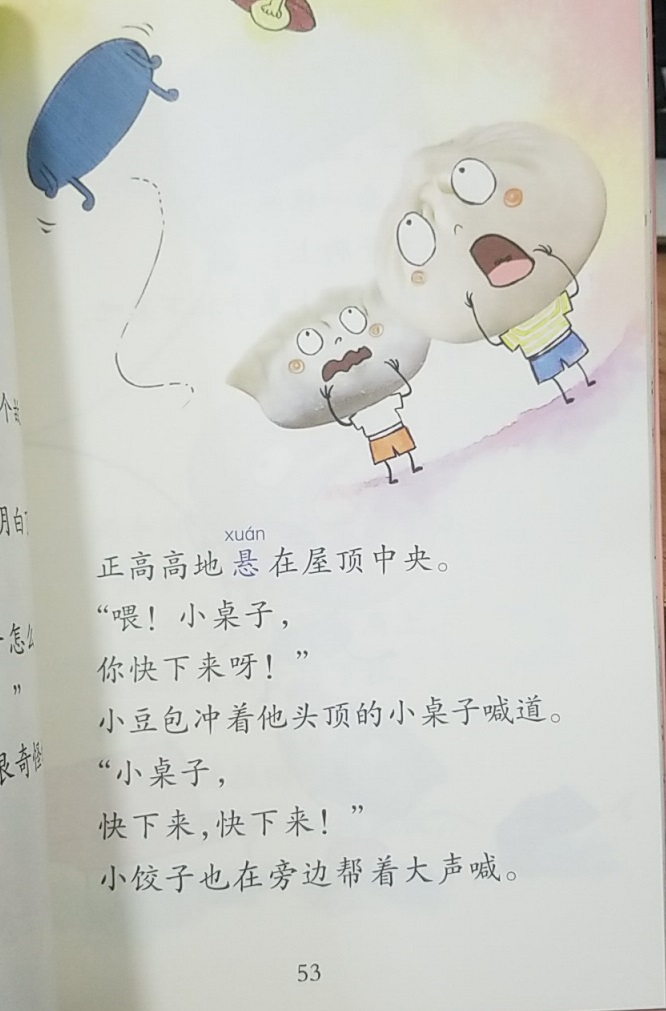 xuán
正高高地悬在屋顶中央。
“喂！小桌子，
你快下来呀！”
小豆包冲着他头顶的小桌子喊道。
“小桌子，
快下来，快下来！”
小饺子也在旁边帮着大声喊。
53